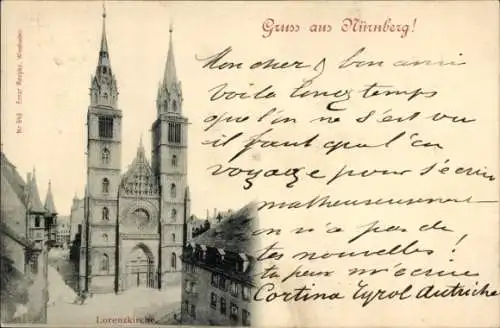 Gruss aus Nürnberg!
Mon cher & bon ami
Voilà longtemps
que l'on ne s'est vu
il faut quand l'on
voyage pour s'écrire
malheureusement
on n'a pas de
tes nouvelles!
tu peux m'écrire
Cortina Tyrol Autriche
Lorenzkirche.
Nr 243 Ernst Wiesbaden